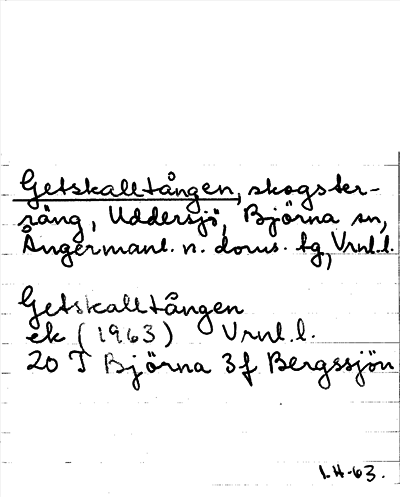 Getskalltången, skogster-
räng, Uddersjö, Björna sn,
Ångermanl. n. doms. tg, Vrnl.l.
Getskalltången
ek (1963) Vrnl.l.
20 I Björna 3f Bergssjön
I.H-63.